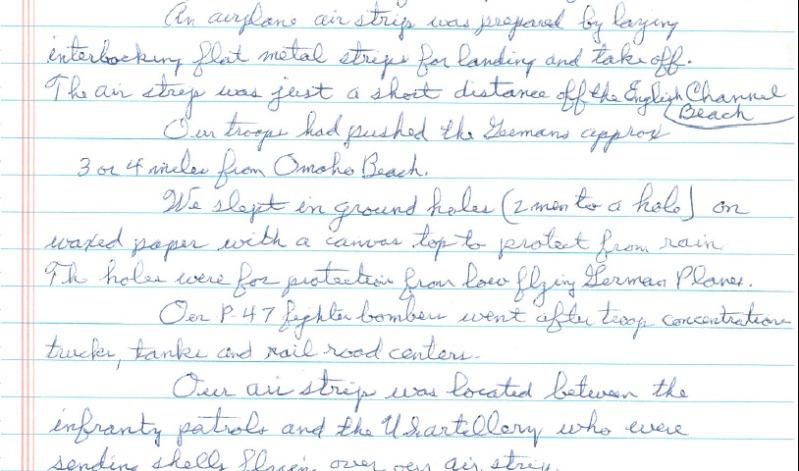 An airplane air strip was prepared by laying
interlocking flat metal strips for landing and take off.
The air strip was just a short distance off the English Channel
Beach
Our troops had pushed the Germans approx
3 or 4 miles from Omaho Beach.
We slept in ground holes (2 men to a hole) on
waxed paper with a canvas top to protect from rain
Th holes were for protection from low flying German Planes.
Our P-47 fighter bombers went after troop concentrations
trucks, tanks and rail road centers.
Our air strip was located between the
infranty patrols and the US artillery who were
sending shells flying over our air strip.